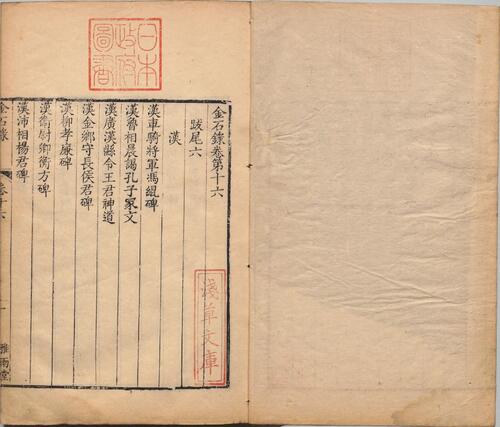 金石錄卷第十六
跋尾六
漢
漢車騎將軍馮緄碑
漢魯相晨謁孔子冢文
漢廣漢縣令王君神道
漢金鄉守長侯君碑
漢柳孝廉碑
漢衞尉卿衡方碑
漢沛相楊君碑
金石錄
卷十六
一
雅雨堂
日本
政府
圖書
淺草文庫